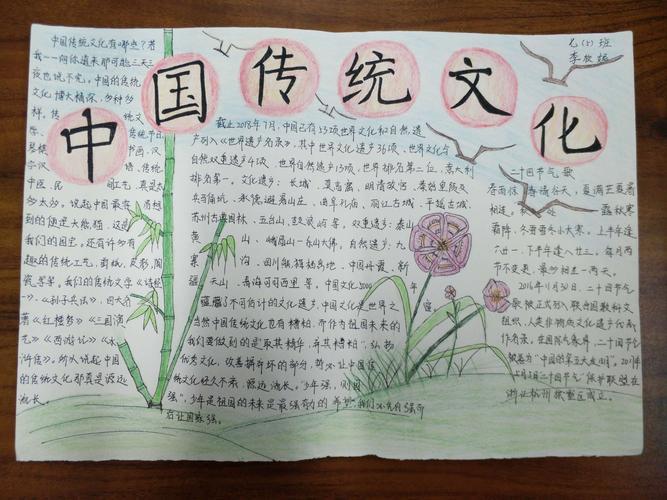 中国传统文化
七(2)班
李
中国传统文化有哪些?若
我一一向你道来那可能三天三
夜也说不完。中国的传统
文化博大精深,多种多
样。传 统文
传统节日,
琴棋 书画,汉
字汉 语,传统
中医,民 间工艺,真是太
多太少。说起中国最 而想
到的便是大熊猫,这是
我们的国宝。还有许多有
趣的传统工艺,剪纸,皮影,陶
瓷等等,我们的传统文学《诗经
》、《孙子兵法》,四大名
著《红楼梦》《三国演
艺》《西游记》《水
浒传》。所以说起中国
的传统文化那真是源远
流长。
截止2018年7月,中国已有53项世界文化和自然遗
产列入《世界遗产名录》,其中世界文化遗产36项,世界文化与
自然双重遗产4项,世界自然遗产13项,世界排名第二位,意大利
排名第一。文化遗产:长城,莫高窟,明清故宫,秦始皇陵及
兵马俑坑,承德避暑山庄,曲阜孔府,丽江古城,平遥古城,
苏州古典园林,五台山, 等,双重遗产:泰山
黄 山,峨眉山-乐山大佛,自然遗产:九
寨 沟,四川熊猫栖息地,中国丹霞,新
疆天山,青海可可西里等,中国文化2000年
蕴藏了不可估计的文化遗产,中国文化是世界之
当然中国传统文化也有糟粕,而作为祖国未来的
我们要做到的是"取其精华,弃其糟粕",弘扬
优秀文化,改善稍斩坏的部分,所以让中国传
统文化经久不衰,源远流长。"少年强,则国
强",少年是祖国的未来是最强有力的希望,我们必先自强而
后让国家强。
二十四节气歌
春雨惊春清谷天,夏满芒夏暑
相连。秋 处 露秋寒
霜降,冬雪雪冬小大寒。上半年逢
六廿一,下半年逢八廿三。每月两
节不变更,最多相差一两天。
2016年11月30日,二十四节气
歌被正式列入联合国教科文
组织,人类非物质文化遗产代表
作名录。在国际气象界,二十四节气
被誉为"中国的第五大发明"。2017年
5月5日二十四节气"保护联盟在
浙江杭州拱墅区成立。